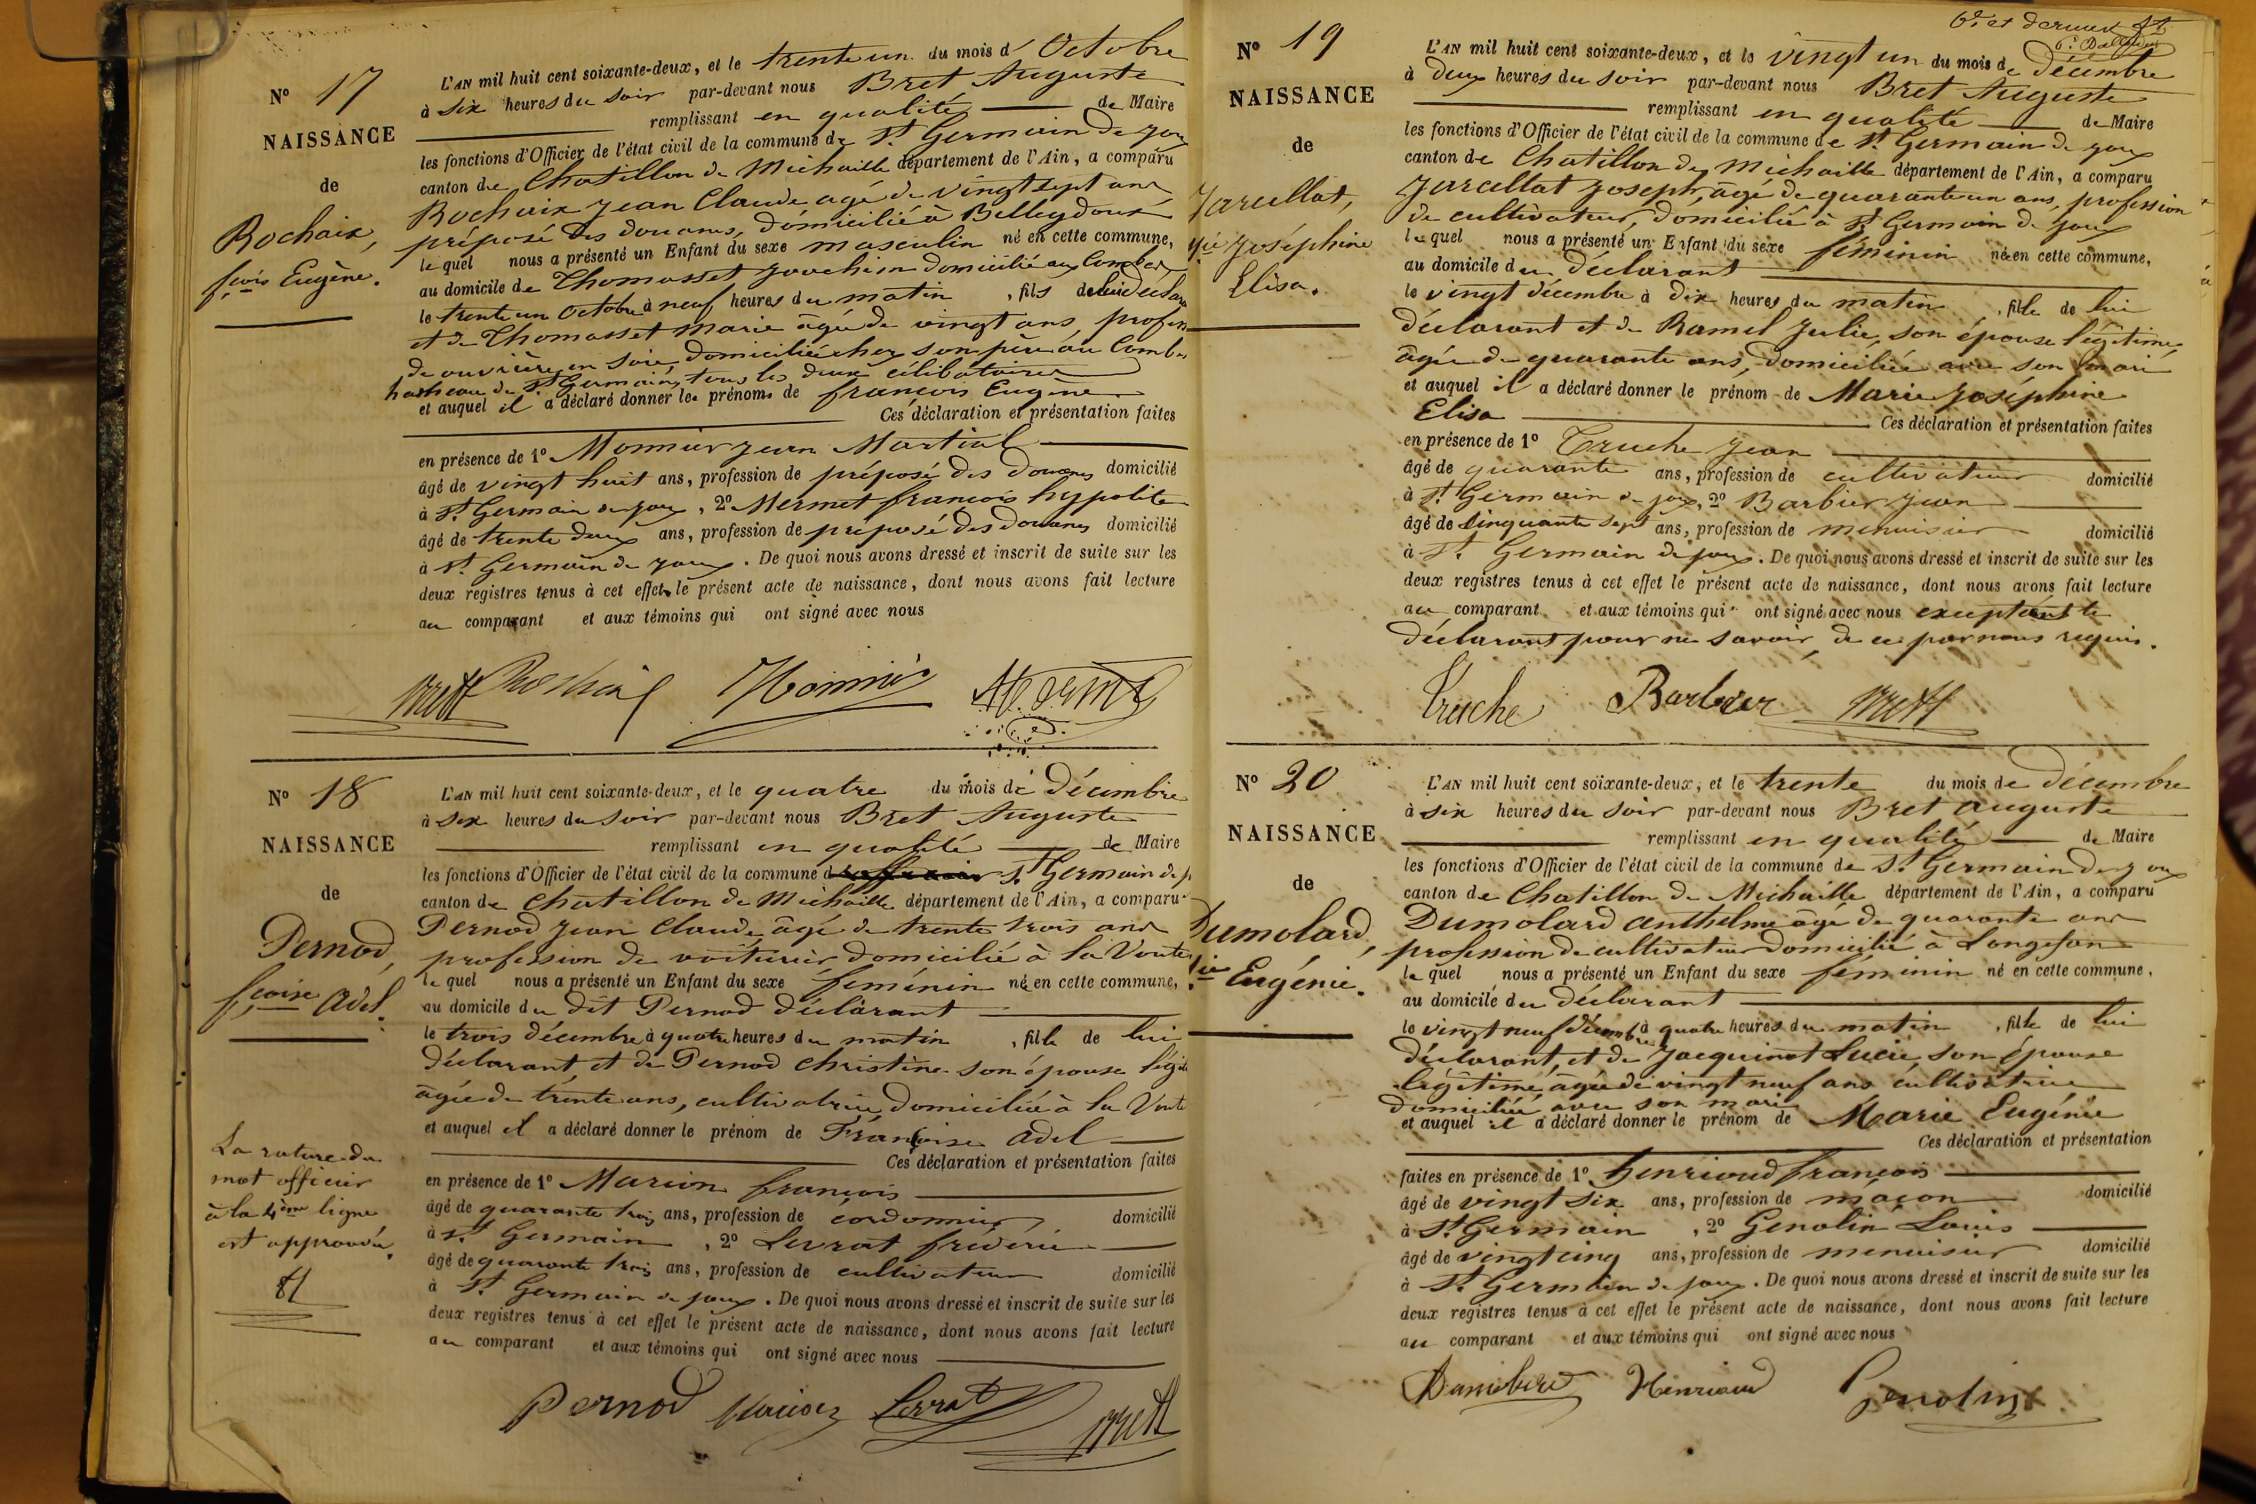 N° 17
NAISSANCE
de
Rochaix,
fçois Eugène.
L'AN mil huit cent soixante-deux, et le trente un du mois d' Octobre
à six heures du soir par-devant nous Bret Auguste
remplissant en qualité de Maire
les fonctions d'Officier de l'état civil de la commune de St Germain de joux
canton de Chatillon de Michaille département de l'Ain, a comparu
Rochaix Jean Claude agé de vingt sept ans
préposé des douanes, domicilié à Belleydoux
le quel nous a présenté un Enfant du sexe masculin né en cette commune,
au domicile de Thomasset Joachim domicilié aux Combes
le trente un Octobre à neuf heures du matin, fils de lui déclara
et de Thomasset Marie âgée de vingt ans, profess
de ouvrière en soie, domiciliée chez son père au Combes
hameau de St Germain, tous les deux célibataires
et auquel il a déclaré donner les prénoms de françois Eugène
Ces déclaration et présentation faites
en présence de 1° Monnier Jean Martial
âgé de vingt huit ans, profession de préposé des douanes domicilié
à St Germain de joux, 2° Mermet françois hypolite
âgé de trente deux ans, profession de préposé des douanes domicilié
à St Germain de joux. De quoi nous avons dressé et inscrit de suite sur les
deux registres tenus à cet effet le présent acte de naissance, dont nous avons fait lecture
au comparant et aux témoins qui ont signé avec nous
Brett Rochaix Monnier Mermet
N° 18
NAISSANCE
de
Pernod,
fçoise Adel.
La rature du
mot officier
à la 4ème ligne
est approuvée.
L'AN mil huit cent soixante-deux, et le quatre du mois de Décembre
à six heures du soir par-devant nous Bret Auguste
remplissant en qualité de Maire
les fonctions d'Officier de l'état civil de la commune d St Germain de j
canton de Chatillon de Michaille département de l'Ain, a comparu
Pernod Jean Claude âgé de trente trois ans
profession de voiturier domicilié à la Voute
le quel nous a présenté un Enfant du sexe féminin né en cette commune,
au domicile du dit Pernod déclarant
le trois décembre à quatre heures du matin, fille de lui
déclarant, et de Pernod Christine son épouse légit
âgée de trente ans, cultivatrice, domiciliée à la Voute
et auquel il a déclaré donner le prénom de Françoise Adel
Ces déclaration et présentation faites
en présence de 1° Marion françois
âgé de quarante trois ans, profession de cordonnier, domicilié
à St Germain, 2° Levrat fréderic
âgé de quarante trois ans, profession de cultivateur domicilié
à St Germain de joux. De quoi nous avons dressé et inscrit de suite sur les
deux registres tenus à cet effet le présent acte de naissance, dont nous avons fait lecture
au comparant et aux témoins qui ont signé avec nous
Pernod Marion Levrat Brett
6e et dernier ft
N° 19
NAISSANCE
de
Jarcellat,
Joséphine
Elisa.
L'AN mil huit cent soixante-deux, et le vingt un du mois de décembre
à deux heures du soir par-devant nous Bret Auguste
remplissant en qualité de Maire
les fonctions d'Officier de l'état civil de la commune de St Germain de joux
canton de Chatillon de Michaille département de l'Ain, a comparu
Jarcellat Joseph, âgé de quarante un ans, profession
de cultivateur, domicilié à St Germain de joux
le quel nous a présenté un Enfant du sexe féminin né en cette commune,
au domicile du déclarant
le vingt décembre à dix heures du matin, fille de lui
déclarant et de Ramel Julie, son épouse légitime,
âgée de quarante ans, domiciliée avec son mari
et auquel il a déclaré donner le prénom de Marie Joséphine
Elisa
Ces déclaration et présentation faites
en présence de 1° Truche Jean
âgé de quarante ans, profession de cultivateur domicilié
à St Germain de joux, 2° Barbier Jean
âgé de cinquante sept ans, profession de menuisier domicilié
à St Germain de joux. De quoi nous avons dressé et inscrit de suite sur les
deux registres tenus à cet effet le présent acte de naissance, dont nous avons fait lecture
au comparant et aux témoins qui ont signé avec nous exceptant le
déclarant pour ne savoir, de ce par nous requis.
Truche Barbier Brett
N° 20
NAISSANCE
de
Dumolard,
Eugénie.
L'AN mil huit cent soixante-deux, et le trente du mois de décembre
à six heures du soir par-devant nous Bret Auguste
remplissant en qualité de Maire
les fonctions d'Officier de l'état civil de la commune de St Germain de joux
canton de Chatillon de Michaille département de l'Ain, a comparu
Dumolard Anthelme âgé de quarante ans
profession de cultivateur domicilié à Longefan
le quel nous a présenté un Enfant du sexe féminin né en cette commune,
au domicile du déclarant
le vingt neuf décembre à quatre heures du matin, fille de lui
déclarant, et de Jacquinot Lucie son épouse
légitime, âgée de vingt neuf ans cultivatrice
domiciliée avec son mari
et auquel il a déclaré donner le prénom de Marie Eugénie
Ces déclaration et présentation
faites en présence de 1° henrioud françois
âgé de vingt six ans, profession de maçon domicilié
à St Germain, 2° Genolin Louis
âgé de vingt cinq ans, profession de menuisier domicilié
à St Germain de joux. De quoi nous avons dressé et inscrit de suite sur les
deux registres tenus à cet effet le présent acte de naissance, dont nous avons fait lecture
au comparant et aux témoins qui ont signé avec nous
Henrioud Genolin